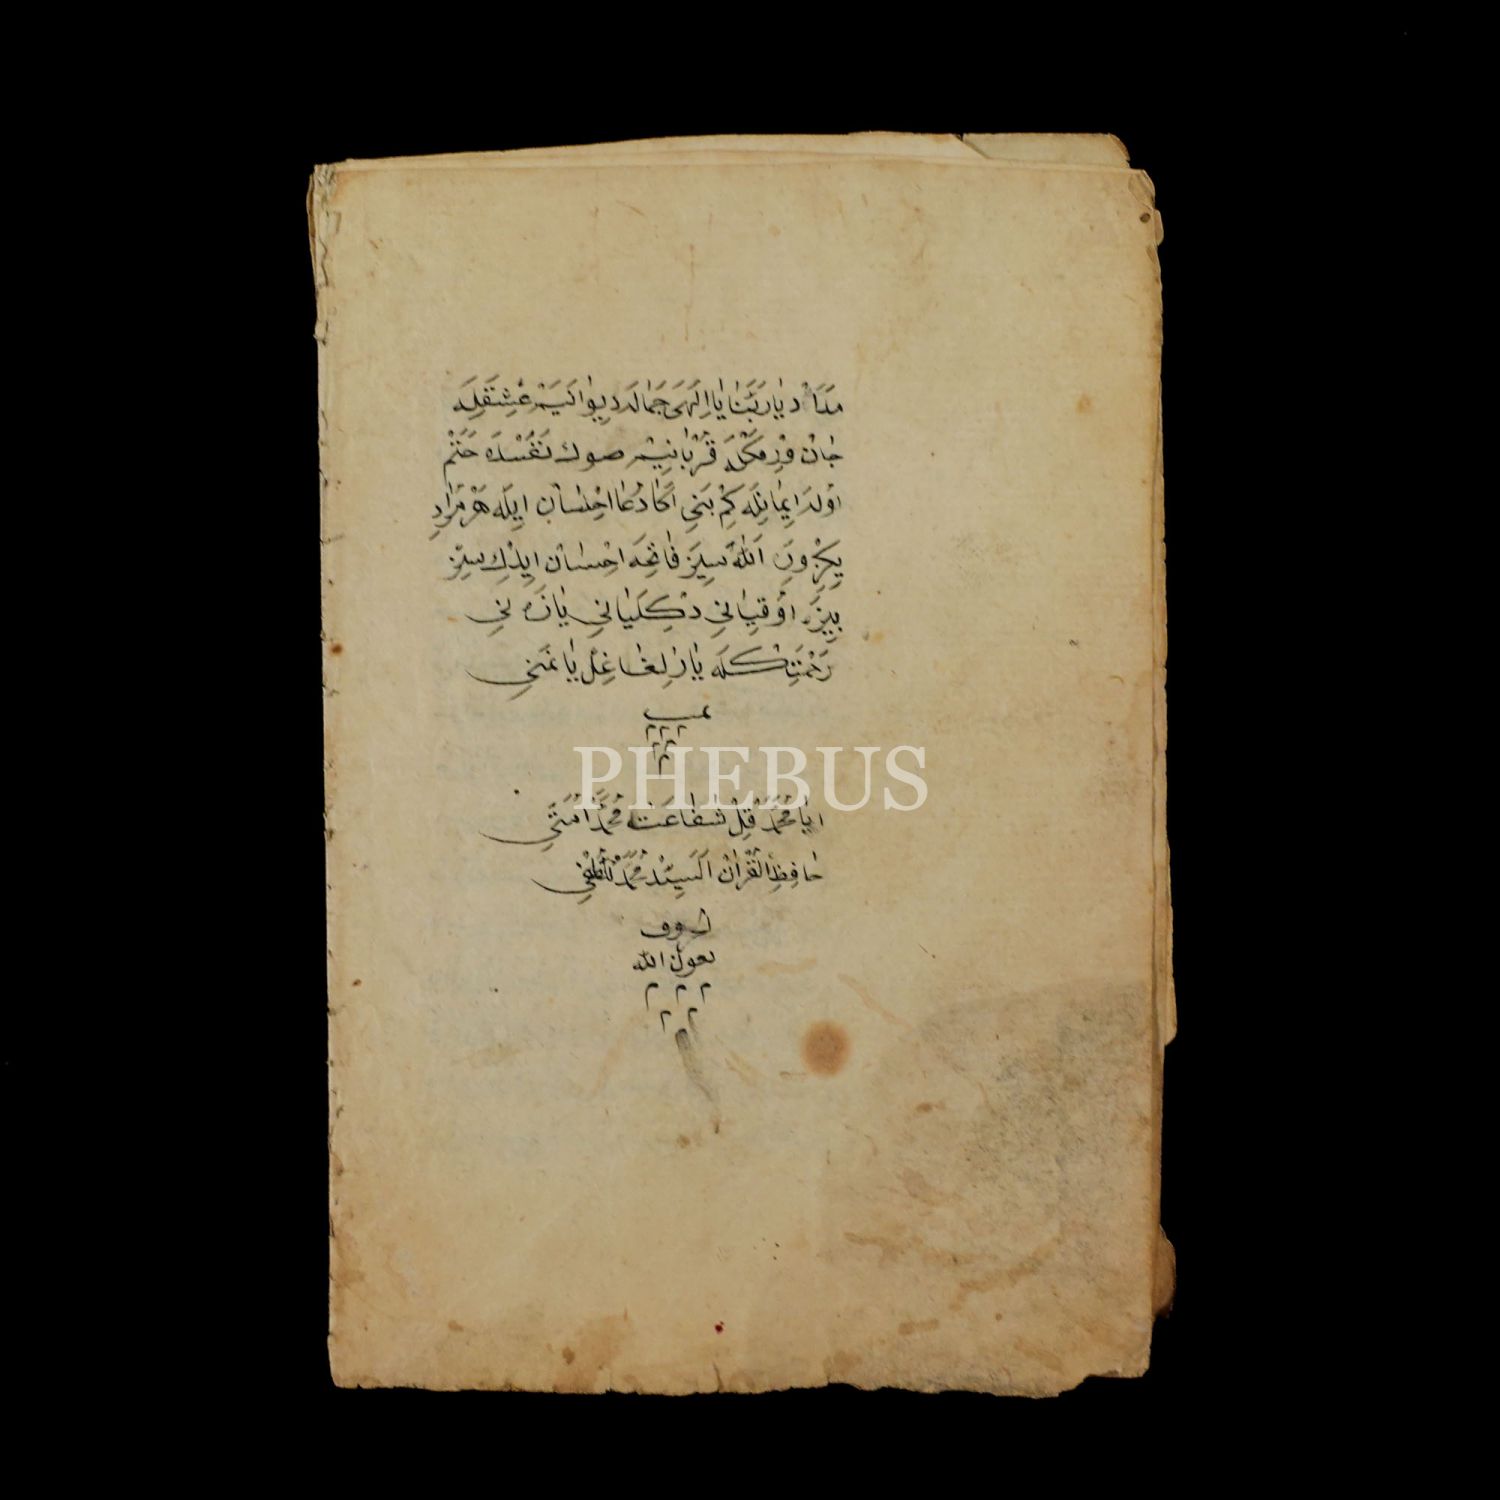 دیار ربنا یا الهی جمالد دیوا لیم عشقله
جان ورمكله قربانیم صوك نفسده ختم
اولد ایمانله كم بنی اكا دعا احسان ایله هر مراد
یكزون الله سیز فاتحه احسان ایدك سز
بیزه اوقیانی دكلیانی یازانی
رحمتكله یارلغاغل یا غنی
PHEBUS
ایا محمد قل شفاعت محمد امتی
حافظ القرآن السید محمد لطفی
بعون الله